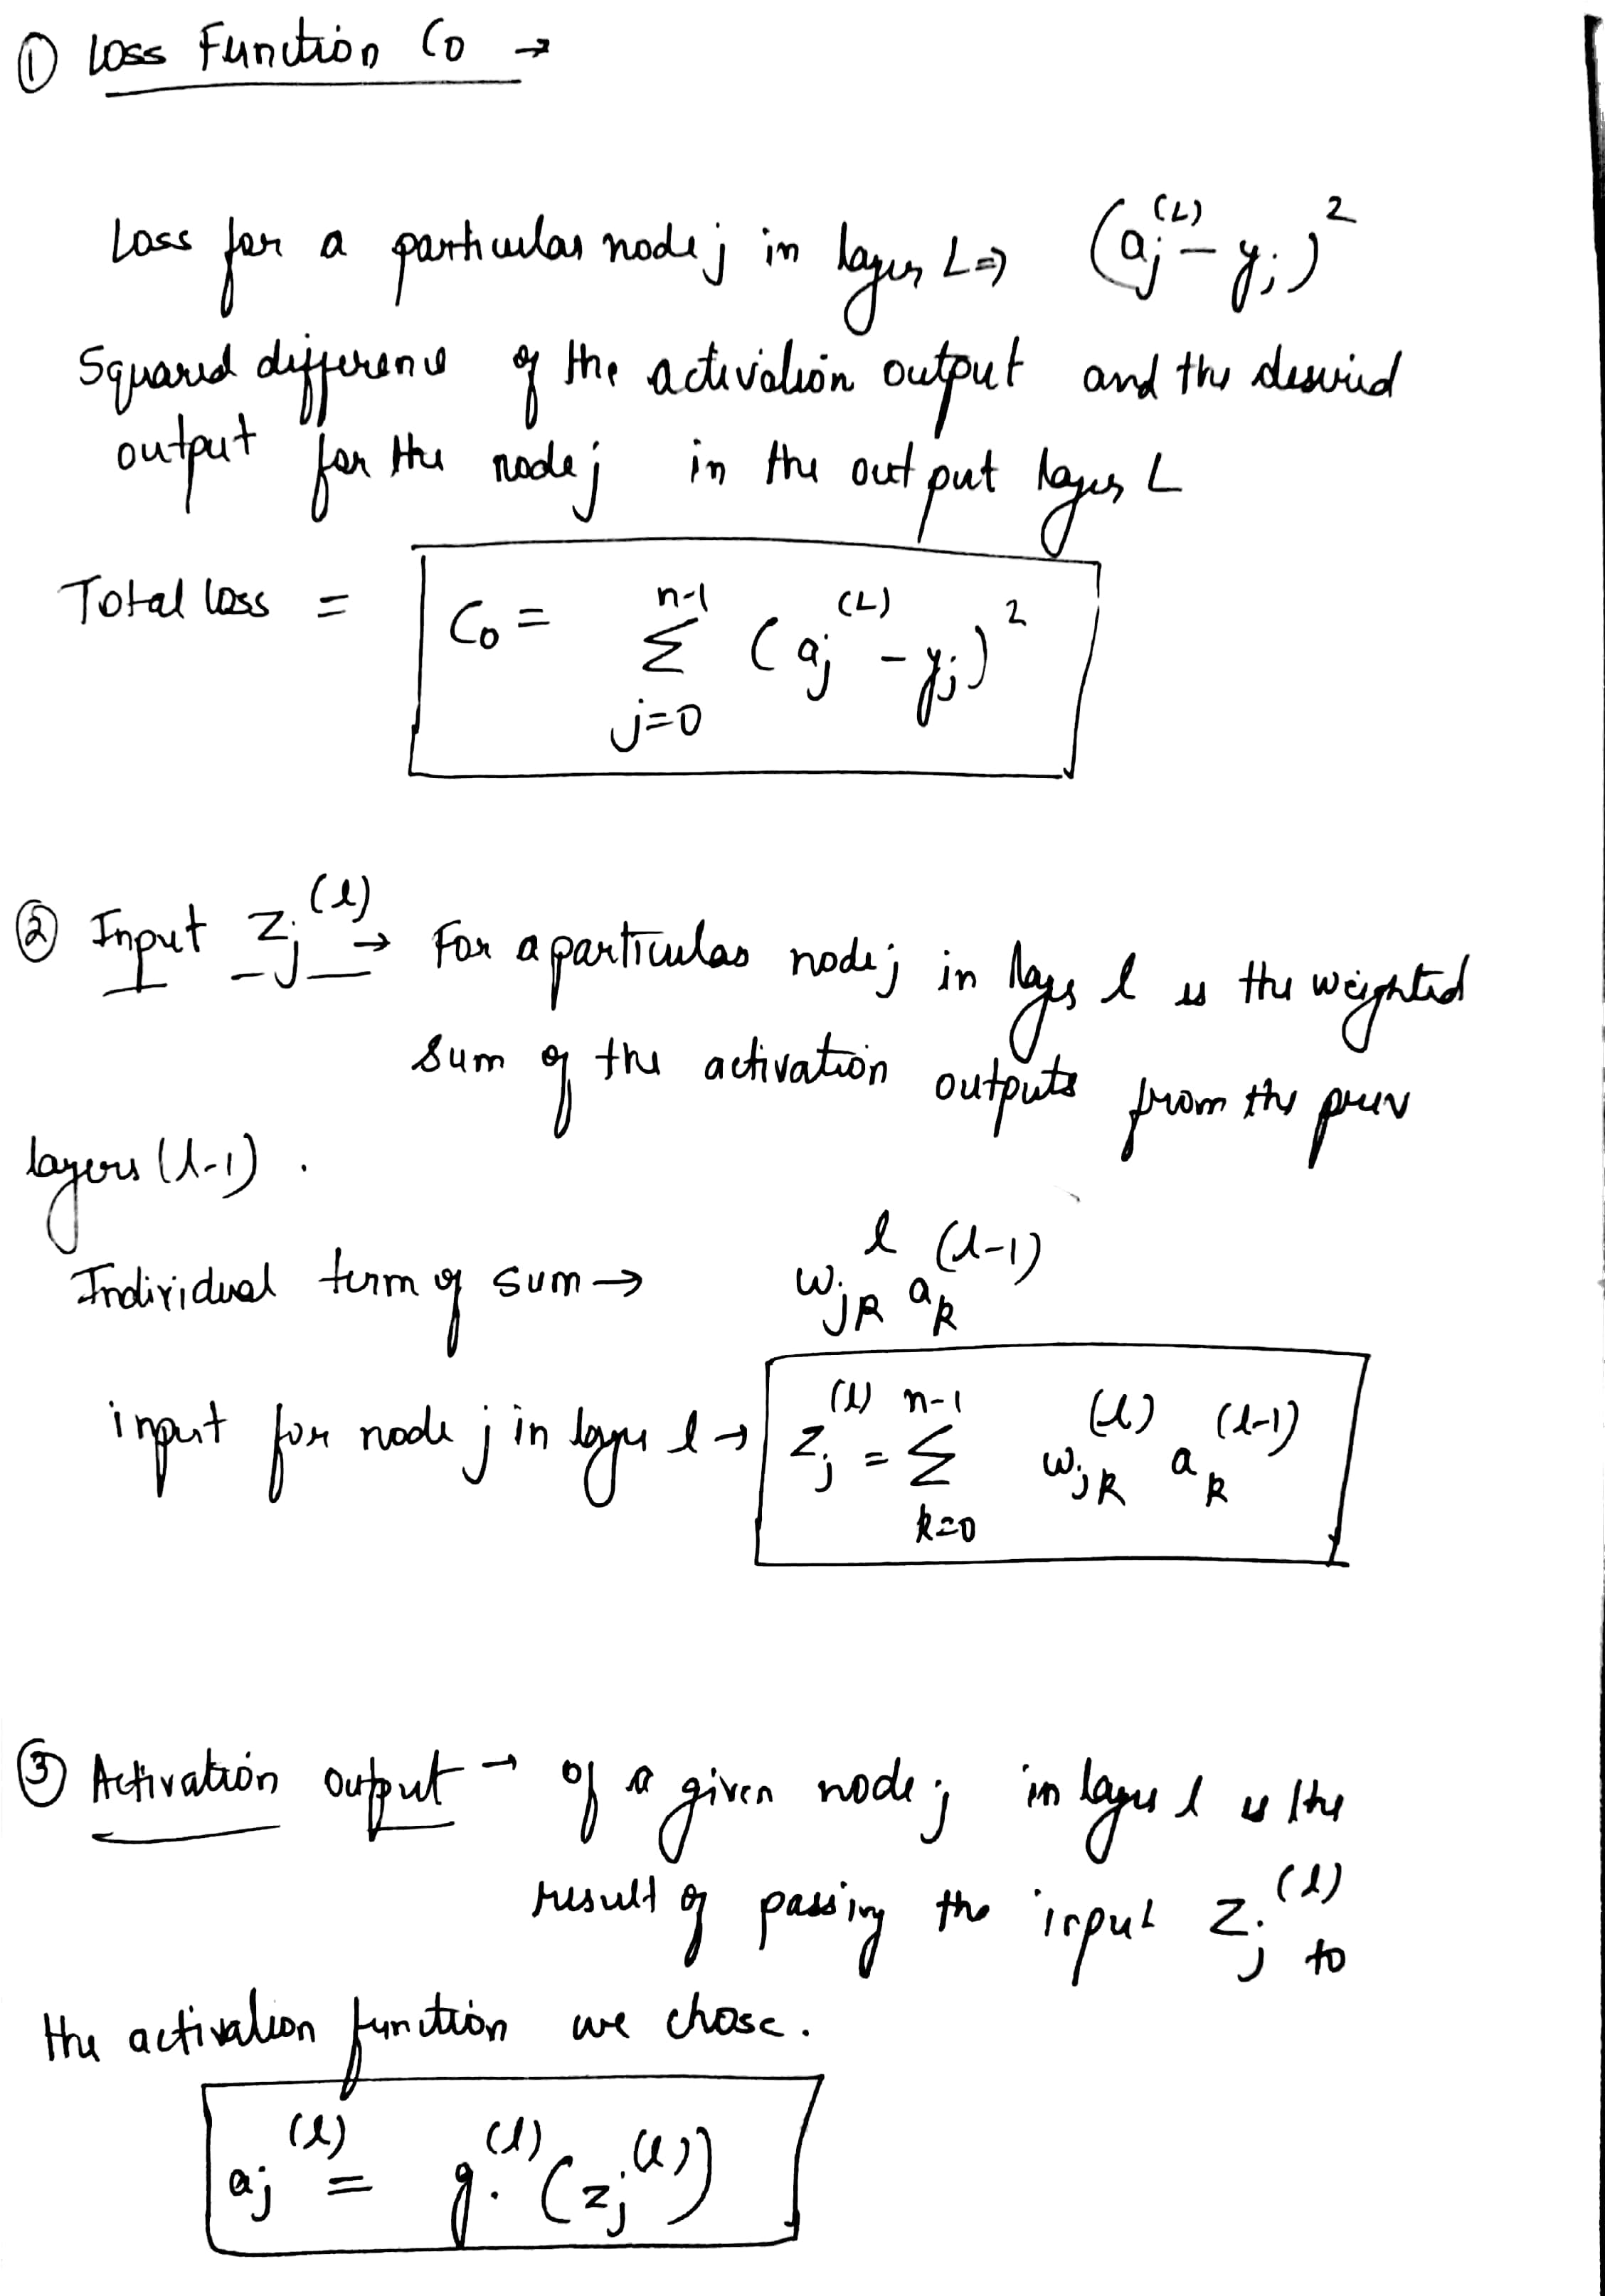 ① Loss Function C₀ →
Loss for a particular node j in layer L ⇒ (aⱼ^(L) − yⱼ)²
Squared difference of the activation output and the desired
output for the node j in the output layer L
Total loss = C₀ = Σ_{j=0}^{n-1} (aⱼ^(L) − yⱼ)²
② Input zⱼ^(l) → For a particular node j in layer l is the weighted
sum of the activation outputs from the prev
layers (l-1) .
Individual term of sum → w_{jk}^l a_k^(l-1)
input for node j in layer l → zⱼ^(l) = Σ_{k=0}^{n-1} w_{jk}^(l) a_k^(l-1)
③ Activation output → of a given node j in layer l is the
result of passing the input zⱼ^(l) to
the activation function we chose.
aⱼ^(l) = g.^(l) (zⱼ^(l))